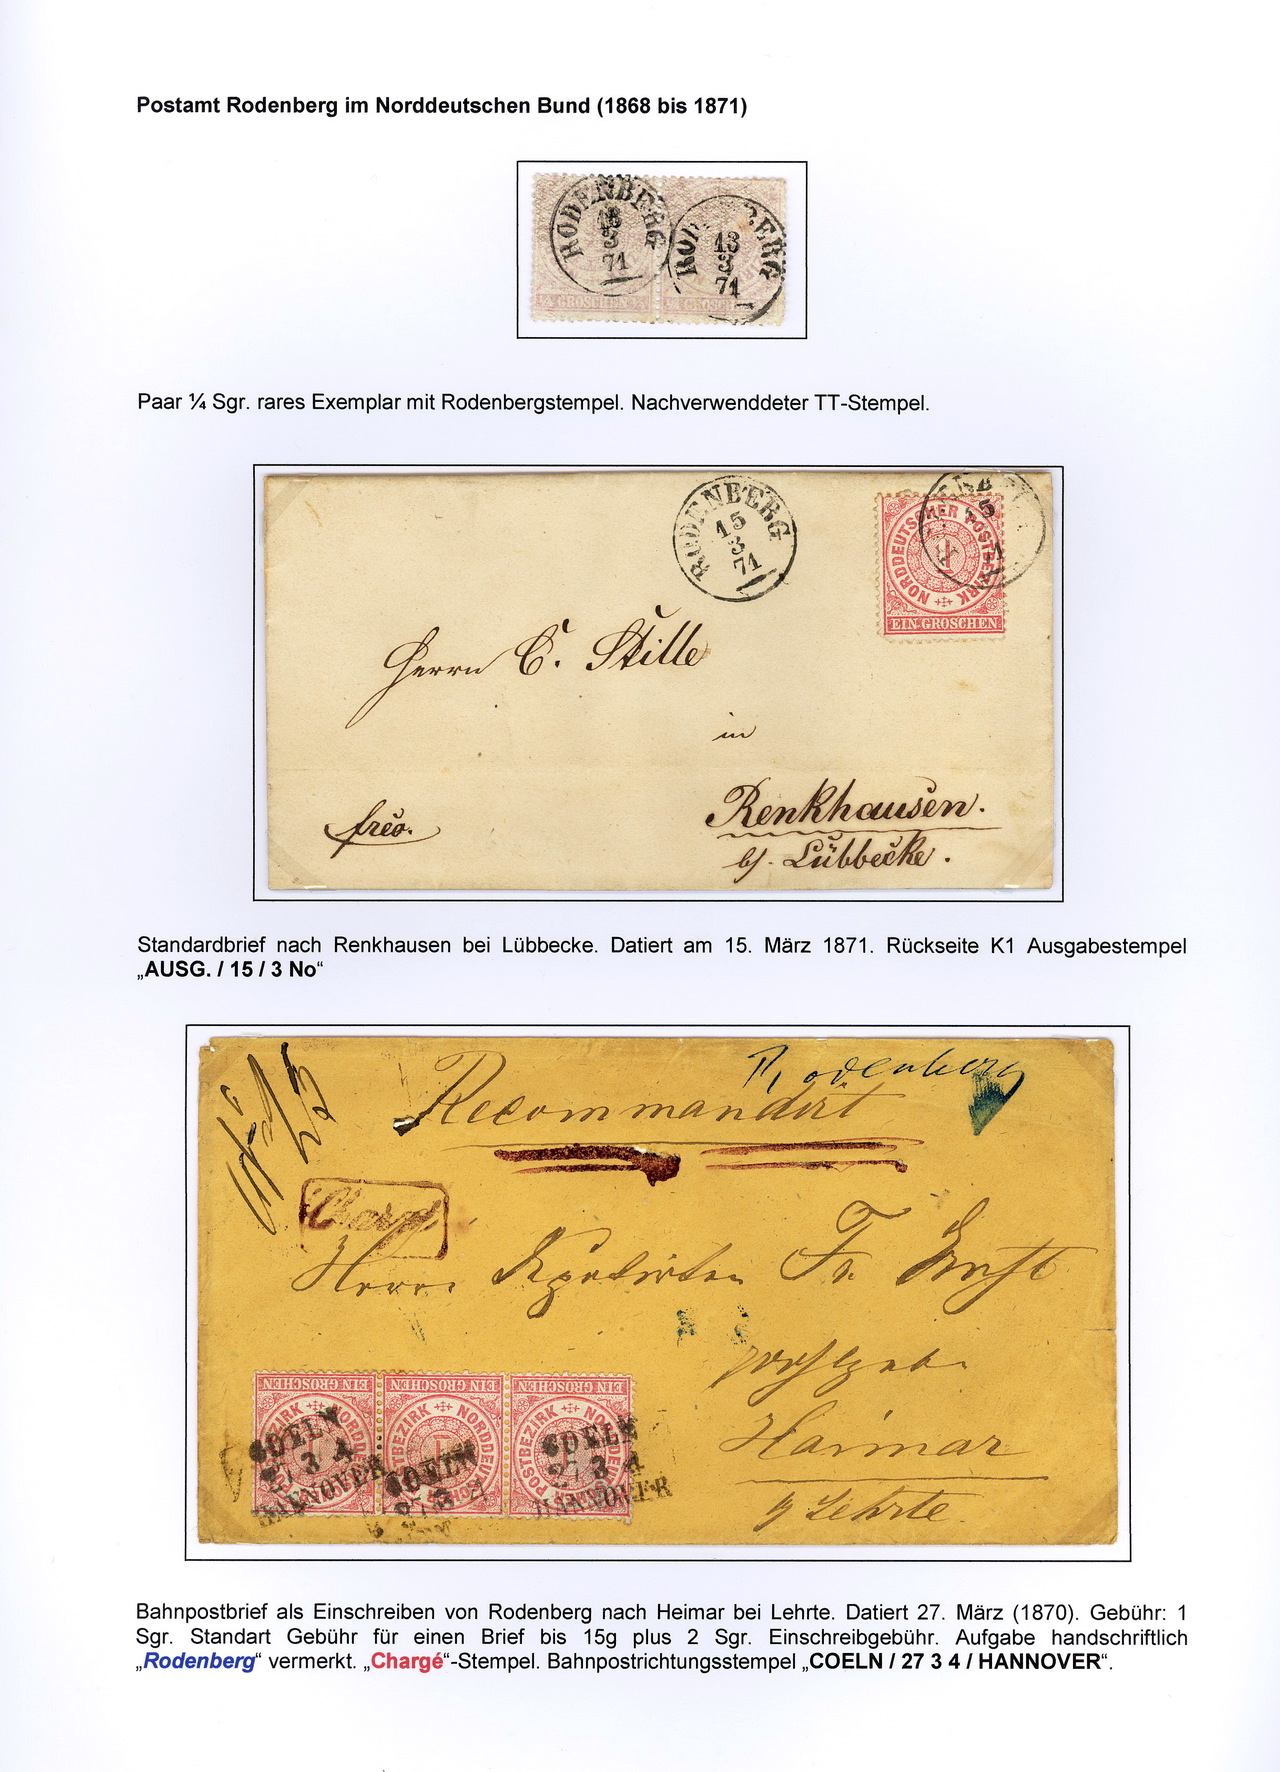 Postamt Rodenberg im Norddeutschen Bund (1868 bis 1871)
RODENBERG
13
3
71
13
3
71
¼ GROSCHEN
GROSCHEN
Paar ¼ Sgr. rares Exemplar mit Rodenbergstempel. Nachverwenddeter TT-Stempel.
RODENBERG
15
3
71
NORDDEUTSCHER POSTBEZIRK
1
EIN GROSCHEN
Herrn C. Stille
in
Renkhausen.
b/. Lübbecke.
frco.
Standardbrief nach Renkhausen bei Lübbecke. Datiert am 15. März 1871. Rückseite K1 Ausgabestempel
„AUSG. / 15 / 3 No“
Rodenberg
Recommandirt
Chargé
Herrn
Fr. Ernst
Haimar
Lehrte.
EIN GROSCHEN EIN GROSCHEN EIN GROSCHEN
NORDDEUTSCHER POSTBEZIRK
COELN
27 3 4
HANNOVER
COELN
27 3 4
COELN
27 3 4
HANNOVER
Bahnpostbrief als Einschreiben von Rodenberg nach Heimar bei Lehrte. Datiert 27. März (1870). Gebühr: 1
Sgr. Standart Gebühr für einen Brief bis 15g plus 2 Sgr. Einschreibgebühr. Aufgabe handschriftlich
„Rodenberg“ vermerkt. „Chargé“-Stempel. Bahnpostrichtungsstempel „COELN / 27 3 4 / HANNOVER“.